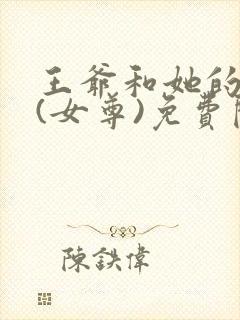 王爺和她的
(女尊)免費
陳鉄偉